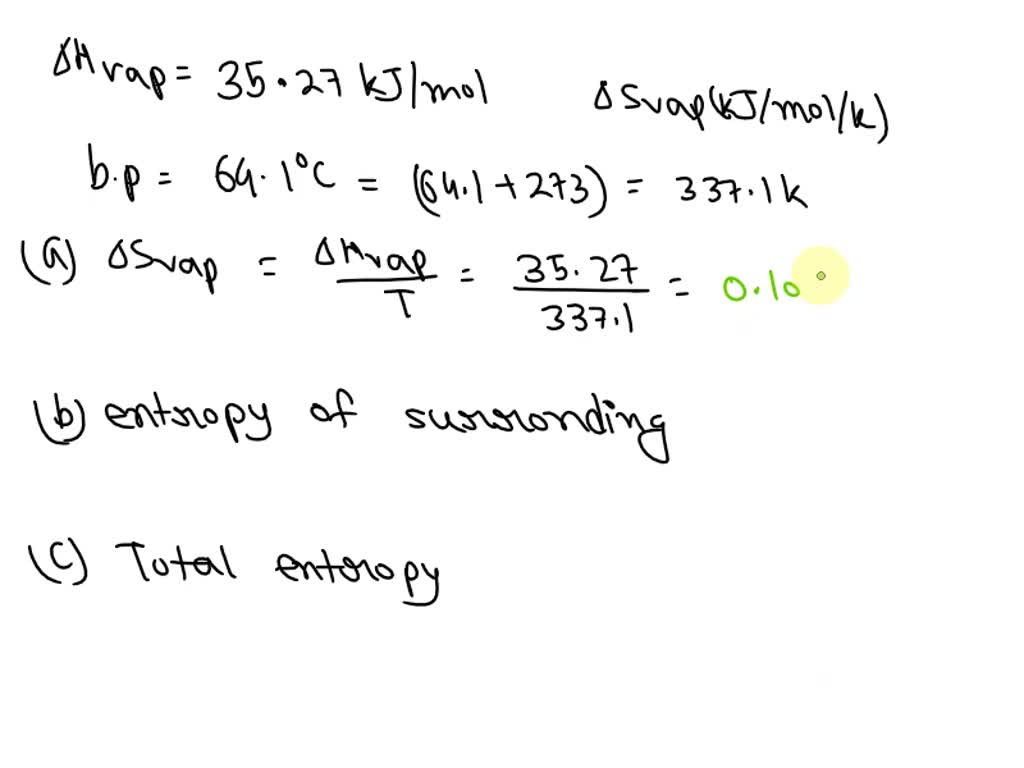 ΔHvap = 35.27 kJ/mol
ΔSvap(kJ/mol/k)
b.p = 64.1°C = (64.1+273) = 337.1k
(a) ΔSvap = ΔHvap/T = 35.27/337.1 = 0.10
(b) entropy of surronding
(c) Total entropy